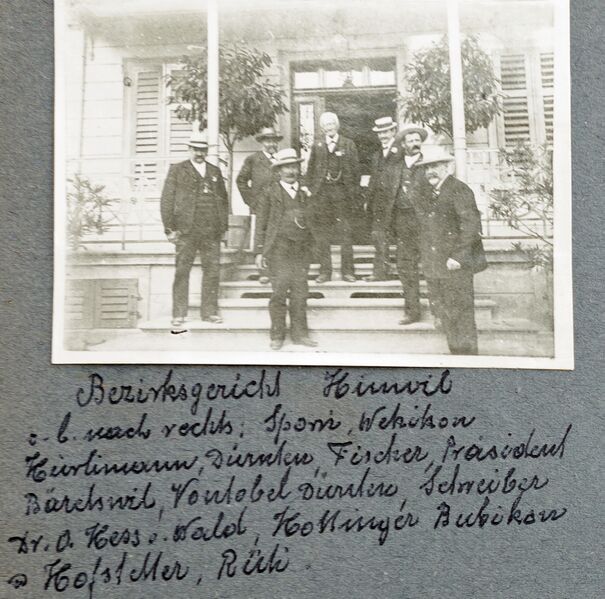 Bezirksgericht Hinwil
v. l. nach rechts: Spörri, Wetzikon
Hürlimann, Dürnten, Fischer, Präsident
Bäretswil, Vontobel Dürnten, Schreiber
Dr. O. Hess v. Wald, Hottinger Bubikon
Hofstetter, Rüti